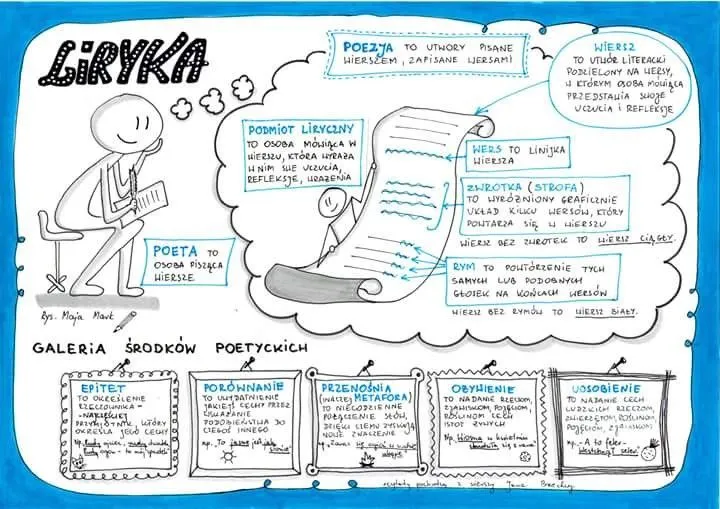 LIRYKA
POEZJA TO UTWORY PISANE
WIERSZEM, ZAPISANE WERSAMI
WIERSZ
TO UTWÓR LITERACKI
PODZIELONY NA WERSY,
W KTÓRYM OSOBA MÓWIĄCA
PRZEDSTAWIA SWOJE
UCZUCIA I REFLEKSJE
PODMIOT LIRYCZNY
TO OSOBA MÓWIĄCA W
WIERSZU, KTÓRA WYRAŻA
W NIM SWE UCZUCIA,
REFLEKSJE, WRAŻENIA
WERS TO LINIJKA
WIERSZA
ZWROTKA (STROFA)
TO WYRÓŻNIONY GRAFICZNIE
UKŁAD KILKU WERSÓW, KTÓRY
POWTARZA SIĘ W WIERSZU
WIERSZ BEZ ZWROTEK TO WIERSZ CIĄGŁY.
RYM TO POWTÓRZENIE TYCH
SAMYCH LUB PODOBNYCH
GŁOSEK NA KOŃCACH WERSÓW
WIERSZ BEZ RYMÓW TO WIERSZ BIAŁY.
POETA TO
OSOBA PISZĄCA
WIERSZE
Rys. Maja Mart
GALERIA ŚRODKÓW POETYCKICH
EPITET
TO OKREŚLENIE
RZECZOWNIKA -
NAJCZĘŚCIEJ
PRZYMIOTNIK, KTÓRY
OKREŚLA JEGO CECHY
np.
PORÓWNANIE
TO UWYDATNIENIE
JAKIEJŚ CECHY PRZEZ
WSKAZANIE
PODOBIEŃSTWA DO
CZEGOŚ INNEGO
np. "To jasne jest jak
słońce"
PRZENOŚNIA
(INACZEJ METAFORA)
TO NIECODZIENNE
POŁĄCZENIE SŁÓW,
DZIĘKI CZEMU ZYSKUJĄ
NOWE ZNACZENIE
np.
OŻYWIENIE
TO NADANIE RZECZOM,
ZJAWISKOM, POJĘCIOM,
ROŚLINOM CECH
ISTOT ŻYWYCH
np. "Wiosna w kwietniu
zbudziła się z rana"
UOSOBIENIE
TO NADANIE CECH
LUDZKICH RZECZOM,
ZWIERZĘTOM, ROŚLINOM,
POJĘCIOM, ZJAWISKOM
np. "- A to feler -
Westchnął seler"
cytaty pochodzą z wierszy Jana Brzechwy